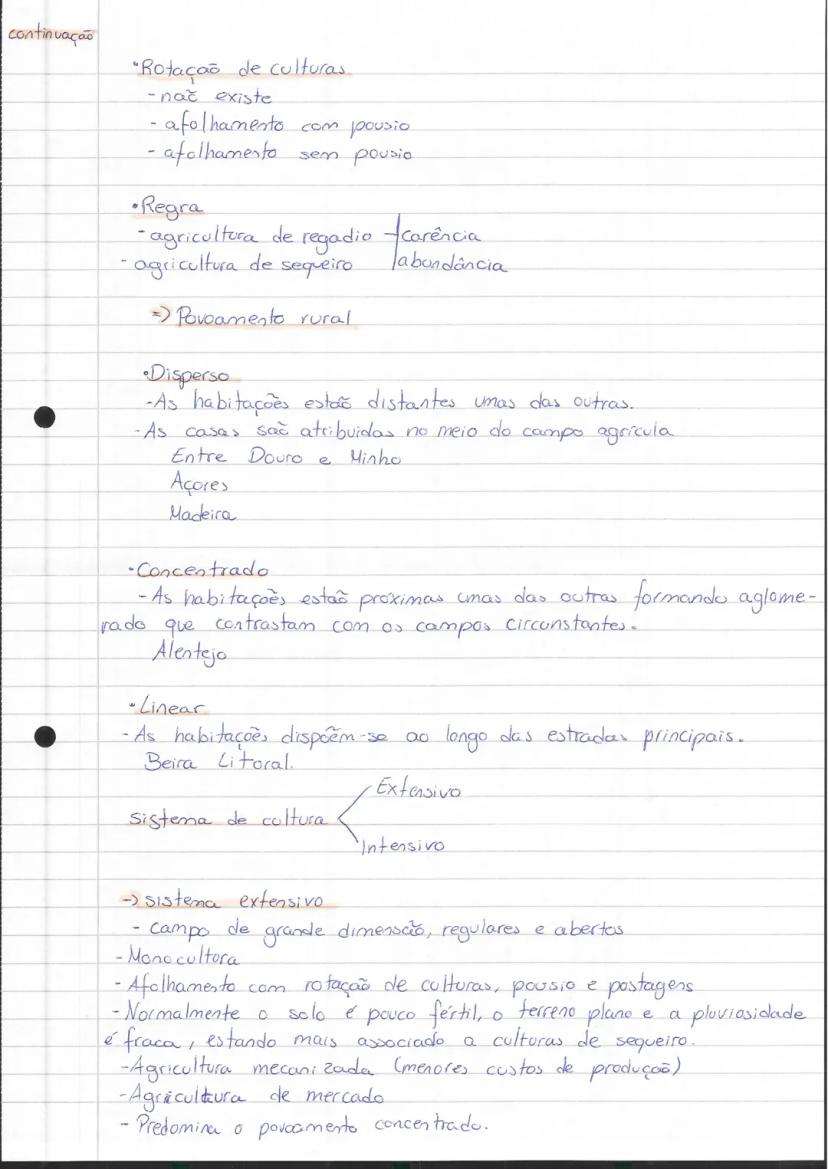 continuação
•Rotação de culturas
- não existe
- afolhamento com pousio
- afolhamento sem pousio
•Regra
- agricultura de regadio carência
- agricultura de sequeiro abundância
=> Povoamento rural
•Disperso
-As habitações estão distantes umas das outras.
-As casas são atribuidas no meio do campo agrícula
Entre Douro e Minho
Açores
Madeira
•Concentrado
-As habitações estão proximas umas das outras formando aglome-
rado que contrastam com os campos circunstantes.
Alentejo
•Linear
-As habitações dispõem-se ao longo das estradas principais.
Beira Litoral.
Extensivo
Sistema de cultura
Intensivo
-> sistema extensivo
- campo de grande dimensão, regulares e abertos
- Monocultura
- Afolhamento com rotação de culturas, pousio e postagens
-Normalmente o solo é pouco fértil, o terreno plano e a pluviosidade
é fraca, estando mais associado a culturas de sequeiro.
-Agricultura mecanizada (menores custos de produção)
-Agricultura de mercado
- Predomina o povoamento concentrado.